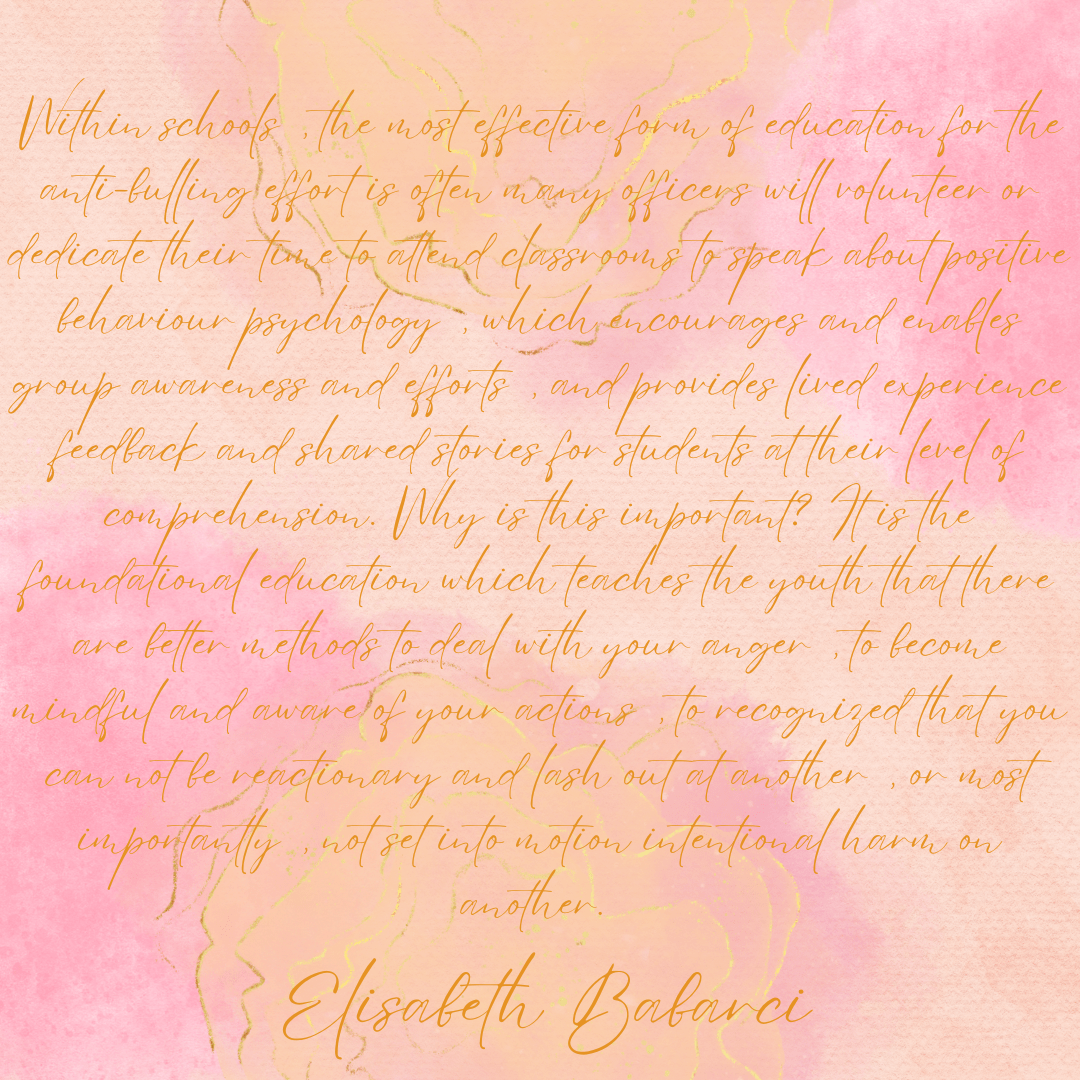 Within schools , the most effective form of education for the
anti-bulling effort is often many officers will volunteer or
dedicate their time to attend classrooms to speak about positive
behaviour psychology , which encourages and enables
group awareness and efforts , and provides lived experience
feedback and shared stories for students at their level of
comprehension. Why is this important? It is the
foundational education which teaches the youth that there
are better methods to deal with your anger , to become
mindful and aware of your actions , to recognized that you
can not be reactionary and lash out at another , or most
importantly , not set into motion intentional harm on
another.
Elisabeth Babarci